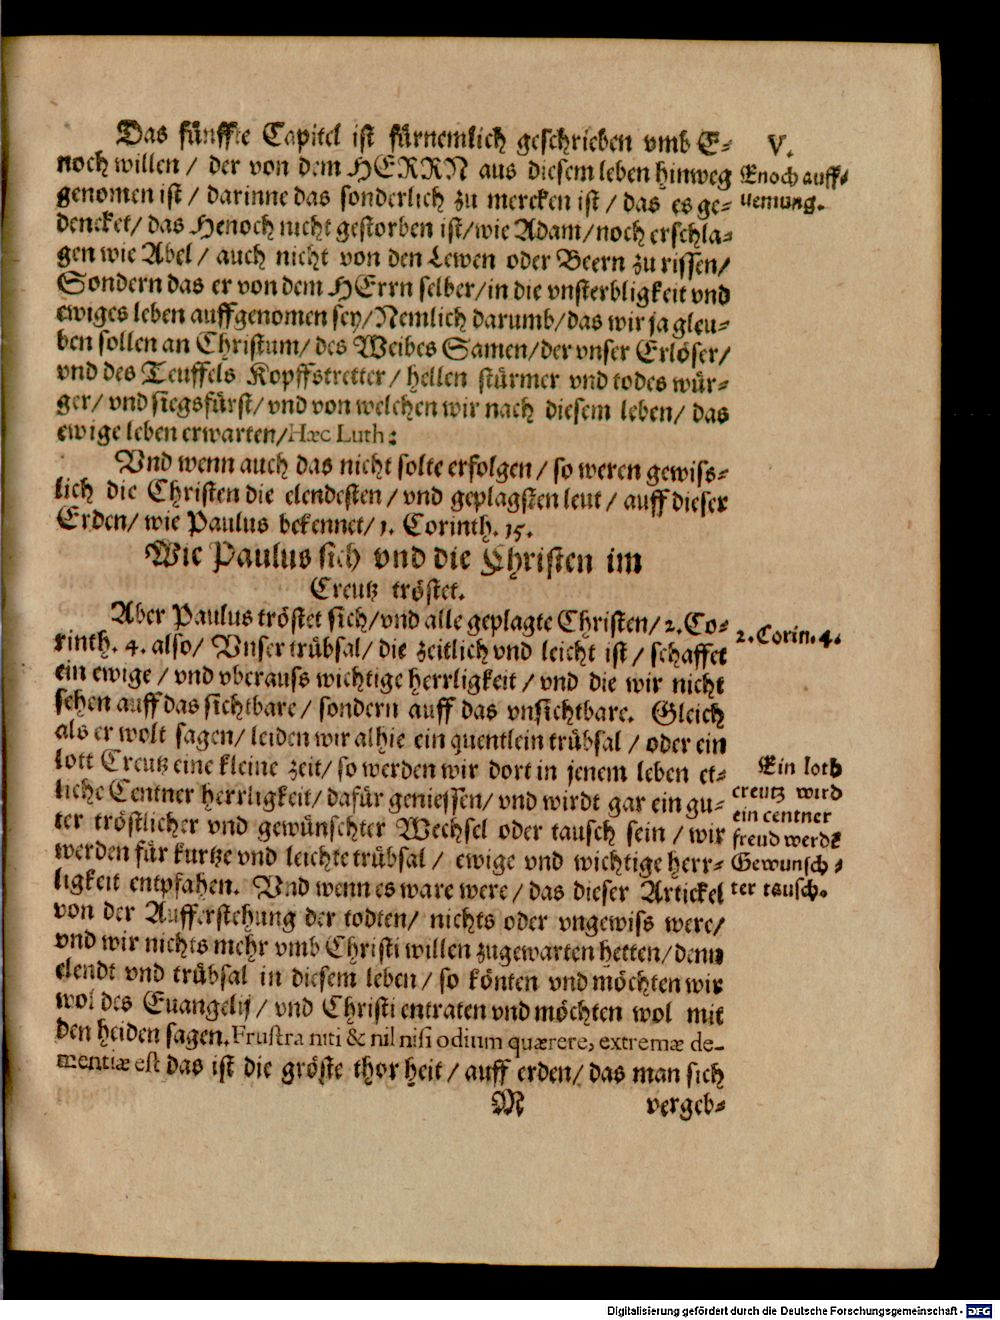 Das fünffte Capitel ist fürnemlich geschrieben vmb E-
noch willen / der von dem HERRN aus diesem leben hinweg
genomen ist / darinne das sonderlich zu mercken ist / das es ge-
dencket / das Henoch nicht gestorben ist / wie Adam / noch erschla-
gen wie Abel / auch nicht von den Lewen oder Beern zu rissen /
Sondern das er von dem HErrn selber / in die vnsterbligkeit vnd
ewiges leben auffgenomen sey / Nemlich darumb / das wir ja gleu-
ben sollen an Christum / des Weibes Samen / der vnser Erlöser /
vnd des Teuffels Kopffstretter / hellen stürmer vnd todes wür-
ger / vnd siegsfürst / vnd von welchen wir nach diesem leben / das
ewige leben erwarten / Hæc Luth:
V.
Enoch auff-
nemung.
Vnd wenn auch das nicht solte erfolgen / so weren gewiss-
lich die Christen die elendesten / vnd geplagsten leut / auff dieser
Erden / wie Paulus bekennet / 1. Corinth. 15.
Wie Paulus sich vnd die Christen im
Creutz tröstet.
Aber Paulus tröstet sich / vnd alle geplagte Christen / 2. Co-
rinth. 4. also / Vnser trübsal / die zeitlich vnd leicht ist / schaffet
ein ewige / vnd vberauss wichtige herrligkeit / vnd die wir nicht
sehen auff das sichtbare / sondern auff das vnsichtbare. Gleich
als er wolt sagen / leiden wir alhie ein quentlein trübsal / oder ein
lott Creutz eine kleine zeit / so werden wir dort in jenem leben et-
liche Centner herrligkeit / dafür geniessen / vnd wirdt gar ein gu-
ter tröstlicher vnd gewünschter Wechsel oder tausch sein / wir
werden für kurtze vnd leichte trübsal / ewige vnd wichtige herr-
ligkeit entpfahen. Vnd wenn es ware were / das dieser Artickel
von der Aufferstehung der todten / nichts oder vngewiss were /
vnd wir nichts mehr vmb Christi willen zugewarten hetten / denn
elendt vnd trübsal in diesem leben / so könten vnd möchten wir
wol des Euangelij / vnd Christi entraten vnd möchten wol mit
den heiden sagen. Frustra niti & nil nisi odium quærere, extremæ de-
mentiæ est das ist die gröste thorheit / auff erden / das man sich
2. Corin. 4.
Ein loth
creutz wird
ein centner
freud werde
Gewunsch-
ter tausch.
M vergeb-
Digitalisierung gefördert durch die Deutsche Forschungsgemeinschaft - DFG